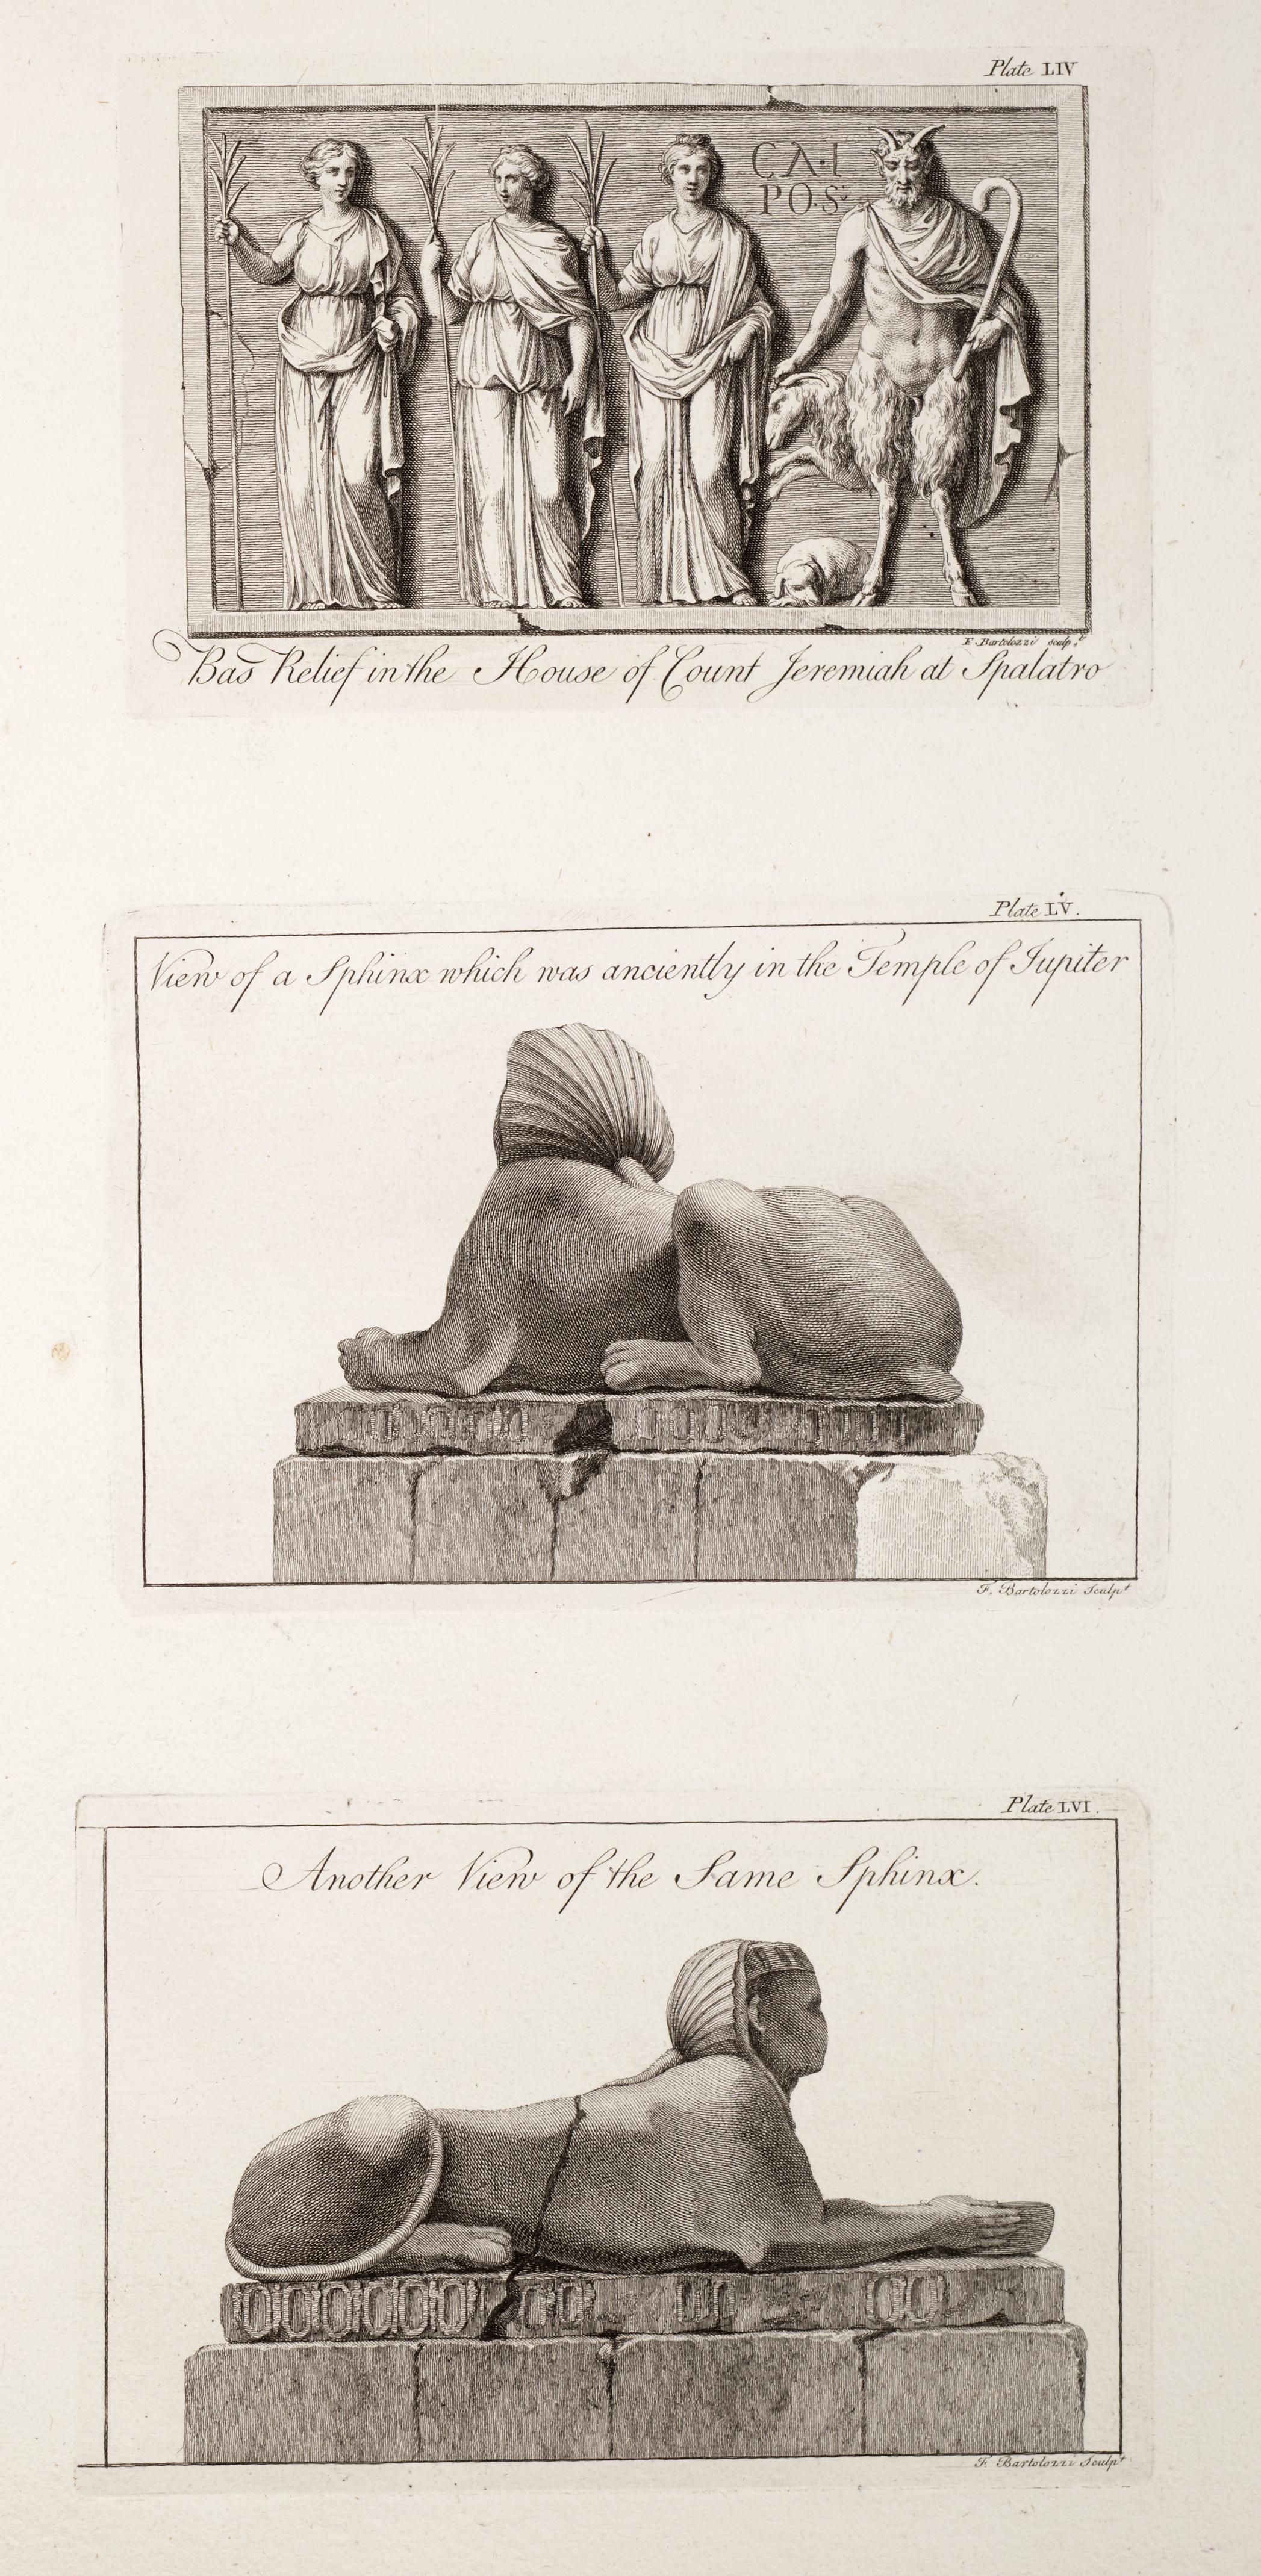 Plate LIV
CA·I
PO·S:
F. Bartolozzi sculp.t
Bas Relief in the House of Count Jeremiah at Spalatro
Plate LV.
View of a Sphinx which was anciently in the Temple of Jupiter
F. Bartolozzi Sculpt
Plate LVI.
Another View of the Same Sphinx.
F. Bartolozzi Sculpt